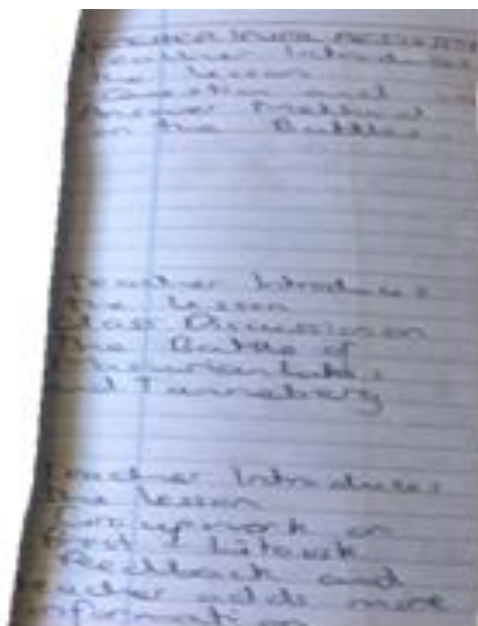 Teacher Introduces
the lesson
Question and
Answer Method
on the Battles
Teacher Introduces
the Lesson
Class Discussion on
The Battle of
Masurian Lakes
and Tanneberg
Teacher Introduces
the lesson
Groupwork on
Brest Litovsk
Feedback and
Teacher adds more
information